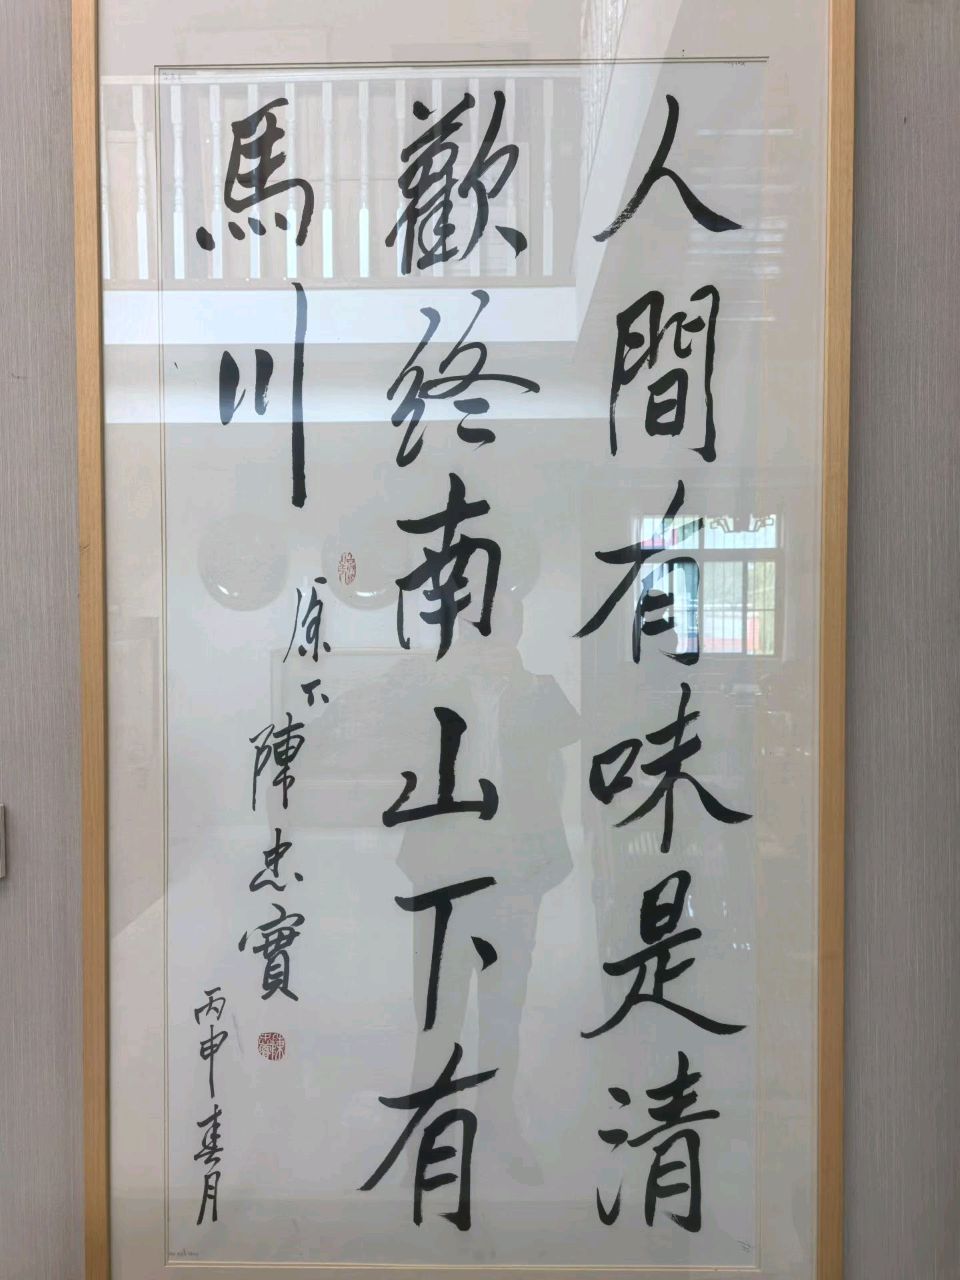 人間有味是清
歡終南山下有
馬川
原下陳忠實
丙申春月